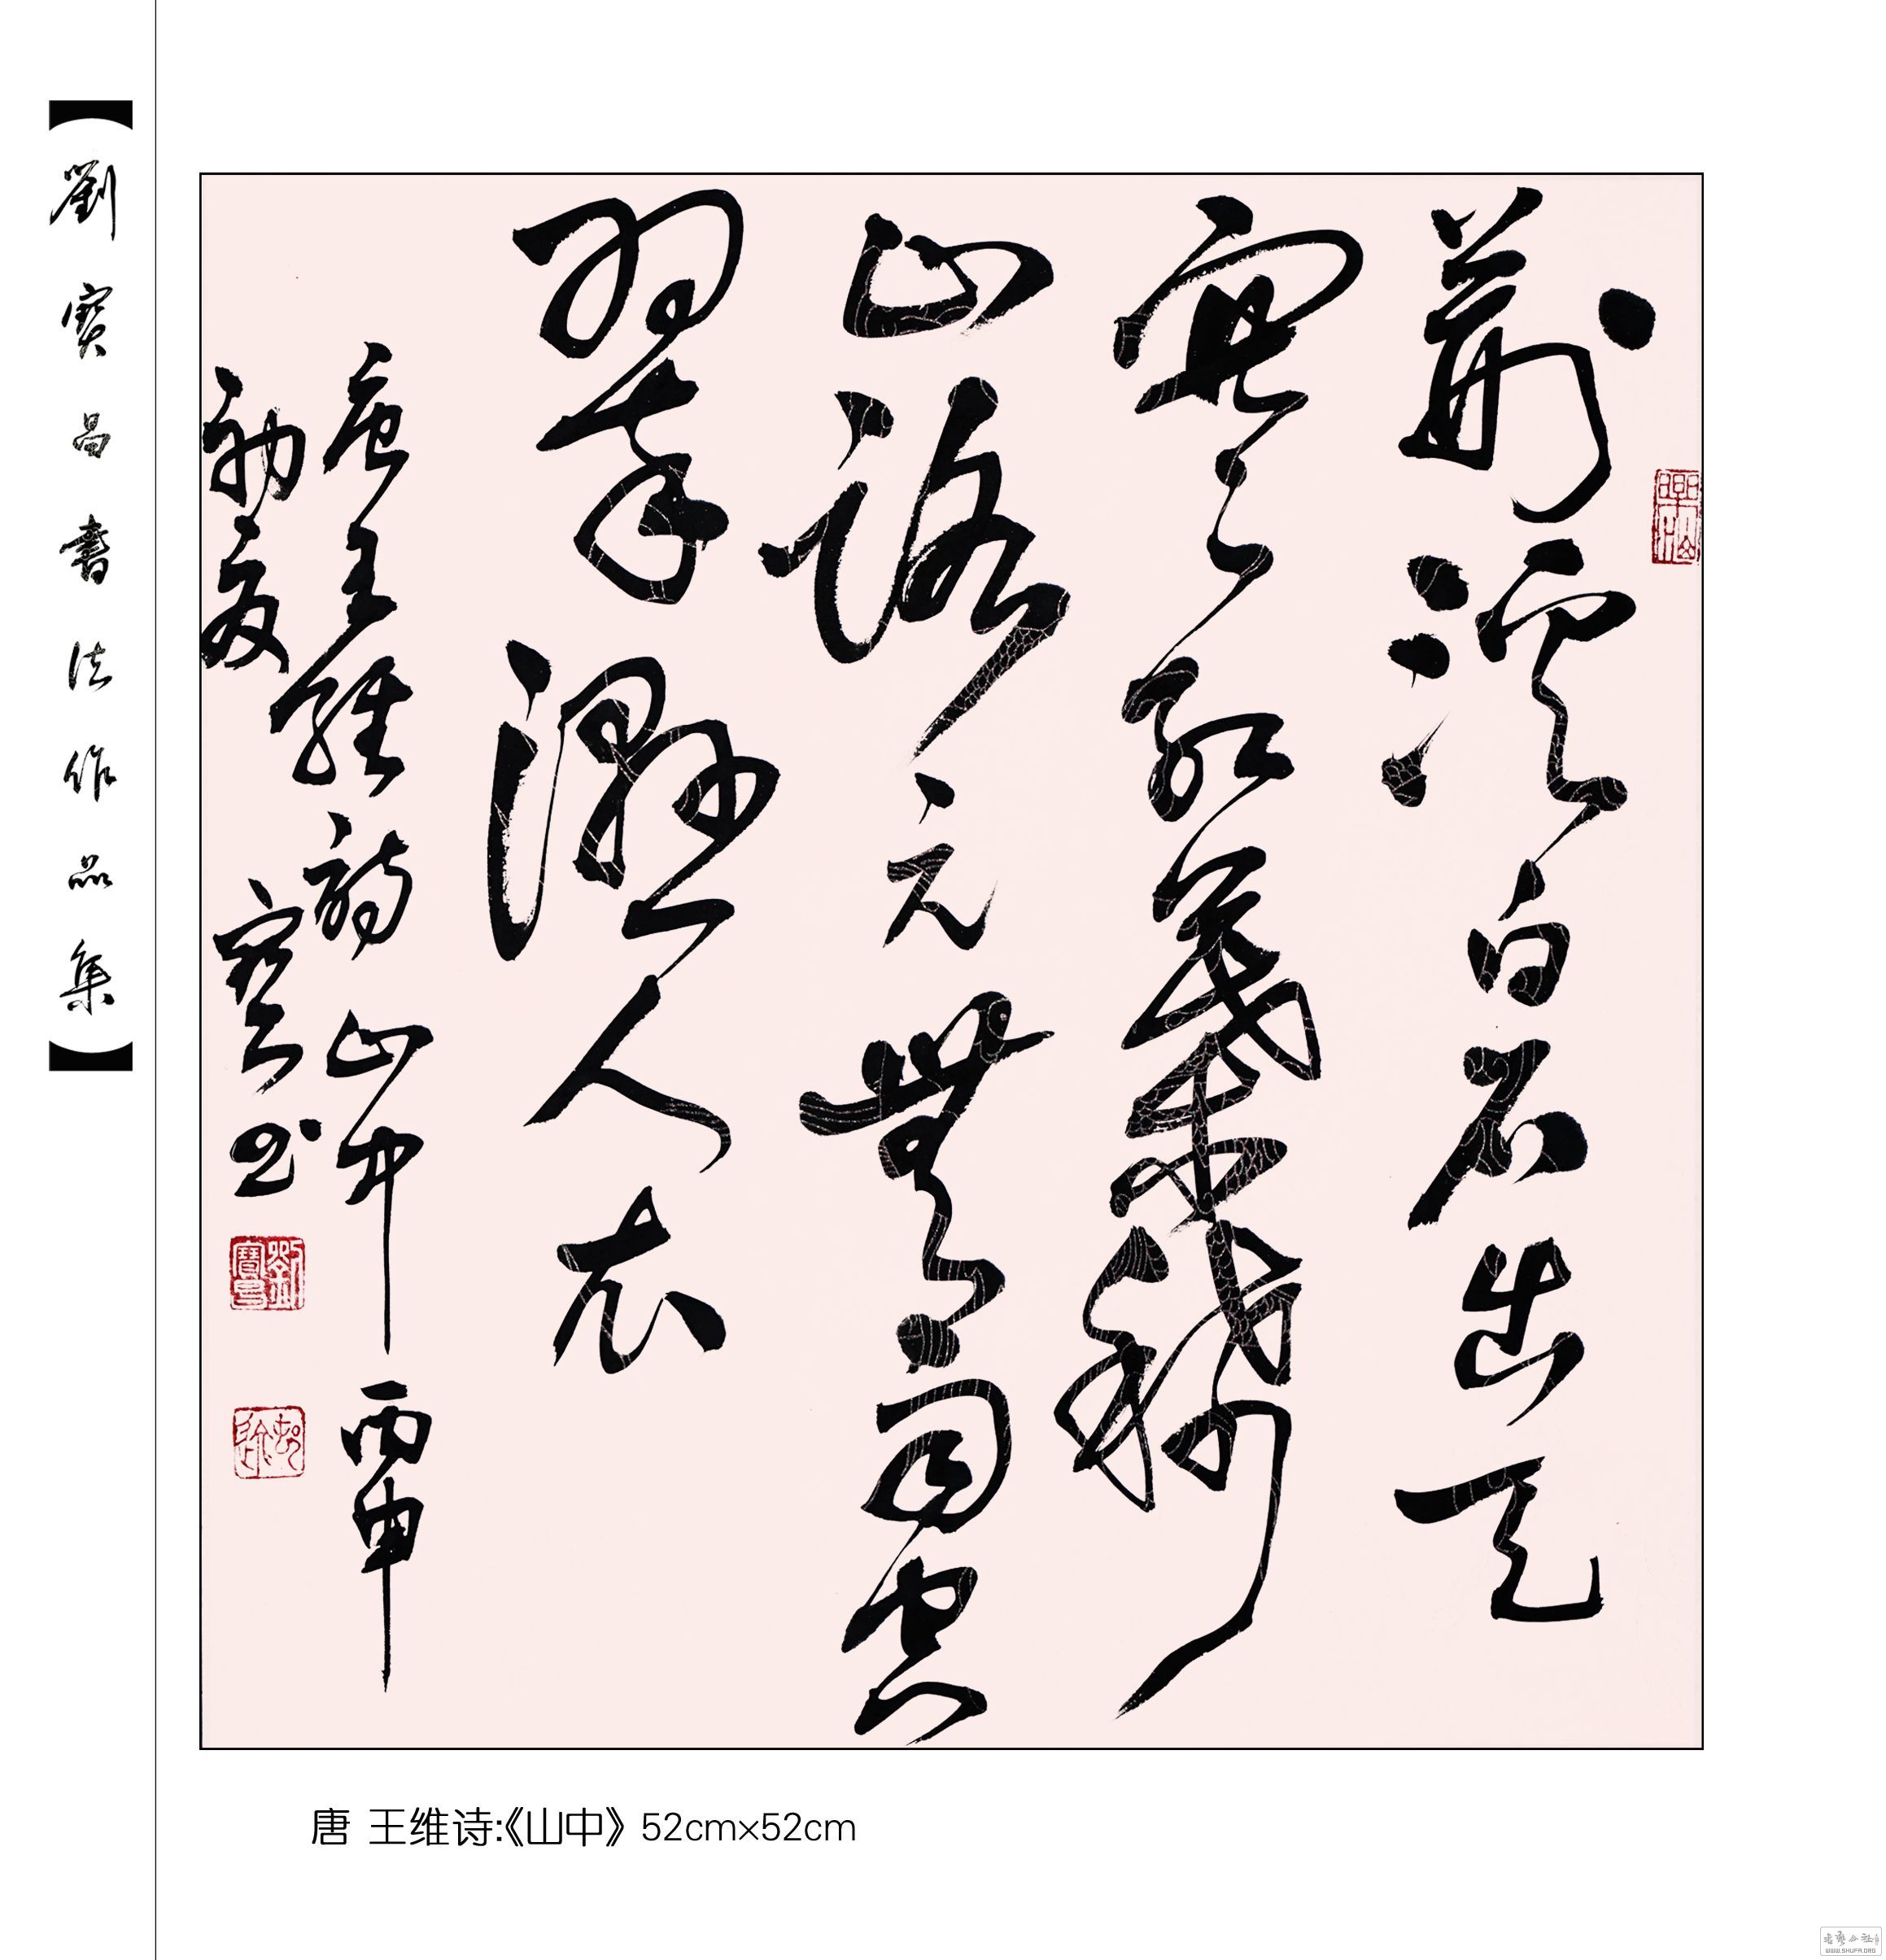 【劉寶昌書法作品集】
荆溪白石出天
寒紅葉稀
山路元無雨空
翠濕人衣
唐王維詩山中丙申
初夏寶昌书
劉寶昌
唐 王维诗:《山中》 52cm×52cm
WWW.SHUFA.ORG